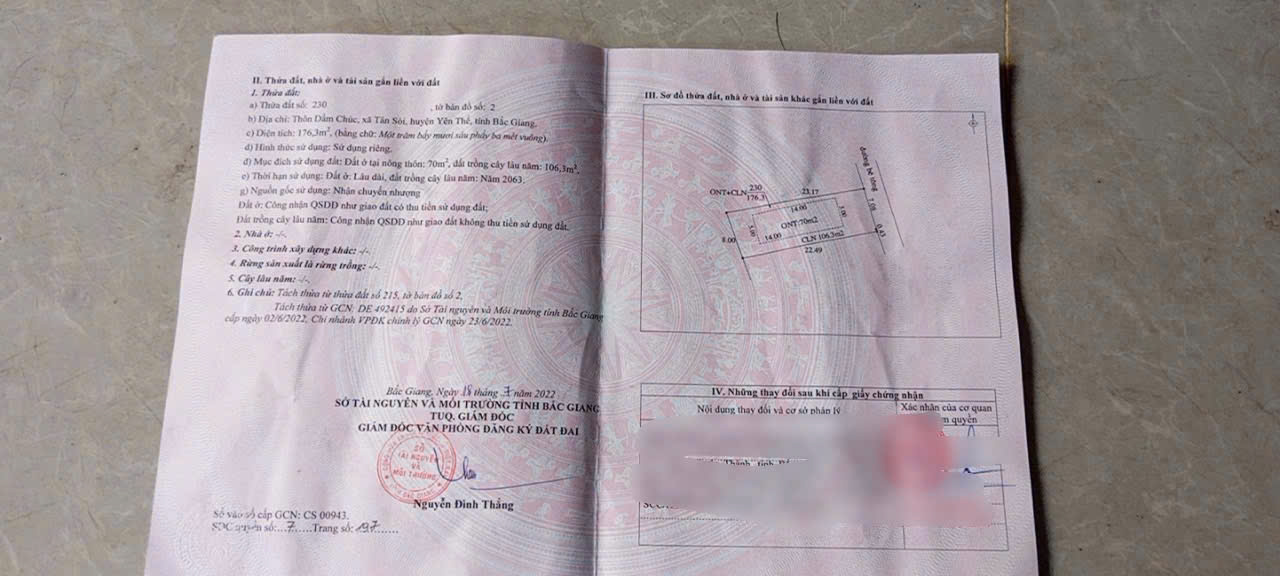 II. Thửa đất, nhà ở và tài sản gắn liền với đất
1. Thửa đất:
a) Thửa đất số: 230 , tờ bản đồ số: 2
b) Địa chỉ: Thôn Dầm Chúc, xã Tân Sỏi, huyện Yên Thế, tỉnh Bắc Giang.
c) Diện tích: 176,3m², (bằng chữ: Một trăm bảy mươi sáu phẩy ba mét vuông).
d) Hình thức sử dụng: Sử dụng riêng.
đ) Mục đích sử dụng đất: Đất ở tại nông thôn: 70m², đất trồng cây lâu năm: 106,3m².
e) Thời hạn sử dụng: Đất ở: Lâu dài, đất trồng cây lâu năm: Năm 2063.
g) Nguồn gốc sử dụng: Nhận chuyển nhượng
Đất ở: Công nhận QSDĐ như giao đất có thu tiền sử dụng đất;
Đất trồng cây lâu năm: Công nhận QSDĐ như giao đất không thu tiền sử dụng đất.
2. Nhà ở: -/-.
3. Công trình xây dựng khác: -/-.
4. Rừng sản xuất là rừng trồng: -/-.
5. Cây lâu năm: -/-.
6. Ghi chú: Tách thửa từ thửa đất số 215, tờ bản đồ số 2.
Tách thửa từ GCN: DE 492415 do Sở Tài nguyên và Môi trường tỉnh Bắc Giang
cấp ngày 02/6/2022, Chi nhánh VPĐK chỉnh lý GCN ngày 23/6/2022.
Bắc Giang, Ngày 18 tháng 7 năm 2022
SỞ TÀI NGUYÊN VÀ MÔI TRƯỜNG TỈNH BẮC GIANG
TUQ. GIÁM ĐỐC
GIÁM ĐỐC VĂN PHÒNG ĐĂNG KÝ ĐẤT ĐAI
SỞ
TÀI NGUYÊN
VÀ
MÔI TRƯỜNG
Nguyễn Đình Thắng
Số vào sổ cấp GCN: CS 00943.
SĐC quyển số:...7.....Trang số: 197......
III. Sơ đồ thửa đất, nhà ở và tài sản khác gắn liền với đất
đường bê tông
ONT+CLN 230
176.3
23.17
7.08
14.00
5.00
ONT:70m2
5.00
8.00
14.00
CLN 106.3m2
0.43
22.49
IV. Những thay đổi sau khi cấp giấy chứng nhận
Nội dung thay đổi và cơ sở pháp lý
Xác nhận của cơ quan
quyền